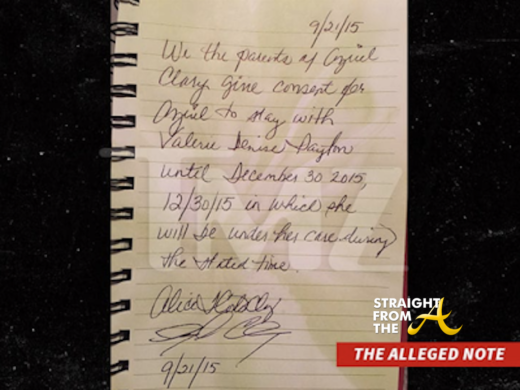 9/21/15
We the parents of Azriel
Clary give consent for
Azriel to stay with
Valerie Denise Payton
until December 30 2015,
12/30/15 in which she
will be under her care during
the stated time.
Alice
9/21/15
STRAIGHT
FROM
THE A
THE ALLEGED NOTE